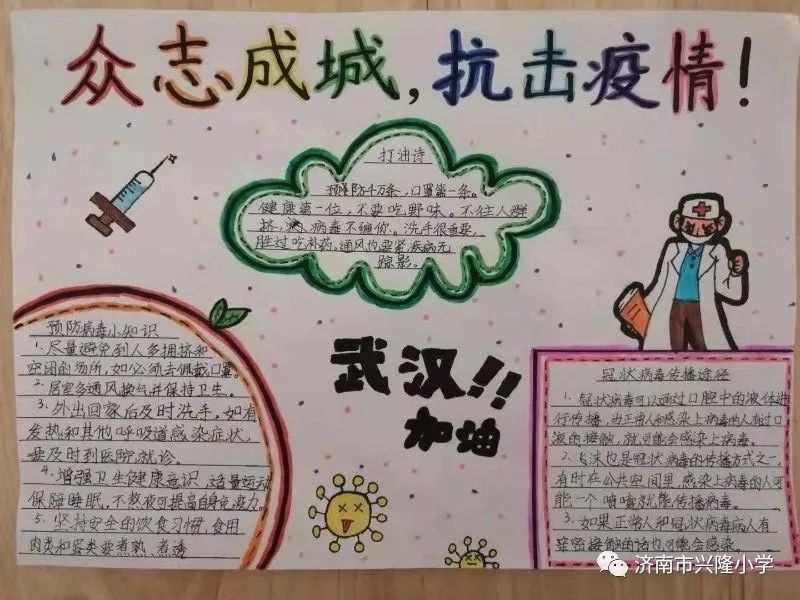 众志成城，抗击疫情！
打油诗
预防千万条，口罩第一条。
健康第一位，不要吃野味。不往人群
挤，病毒不缠你。洗手很重要，
胜过吃补药，通风也要紧，疾病无
踪影。
预防病毒小知识
1、尽量避免到人多拥挤和
空闭的场所，如必须去佩戴口罩。
2、居室多通风换气并保持卫生。
3、外出回家后及时洗手，如有
发热和其他呼吸道感染症状，
要及时到医院就诊。
4、增强卫生健康意识，适量运动
保障睡眠，不熬夜可提高自身免疫力。
5、坚持安全的饮食习惯，食用
肉类和蛋类要煮熟、煮透
武汉!!
加油
冠状病毒传播途径
1、冠状病毒可以通过口腔中的液体进
行传播，当正常人和感染上病毒的人有过口
液的接触，就可能会感染上病毒。
2、飞沫也是冠状病毒的传播方式之一，
有时在公共空间里，感染上病毒的人可
能一个喷嚏就能传播病毒。
3、如果正常人和冠状病毒病人有
紧密接触的话也可能会感染。
济南市兴隆小学